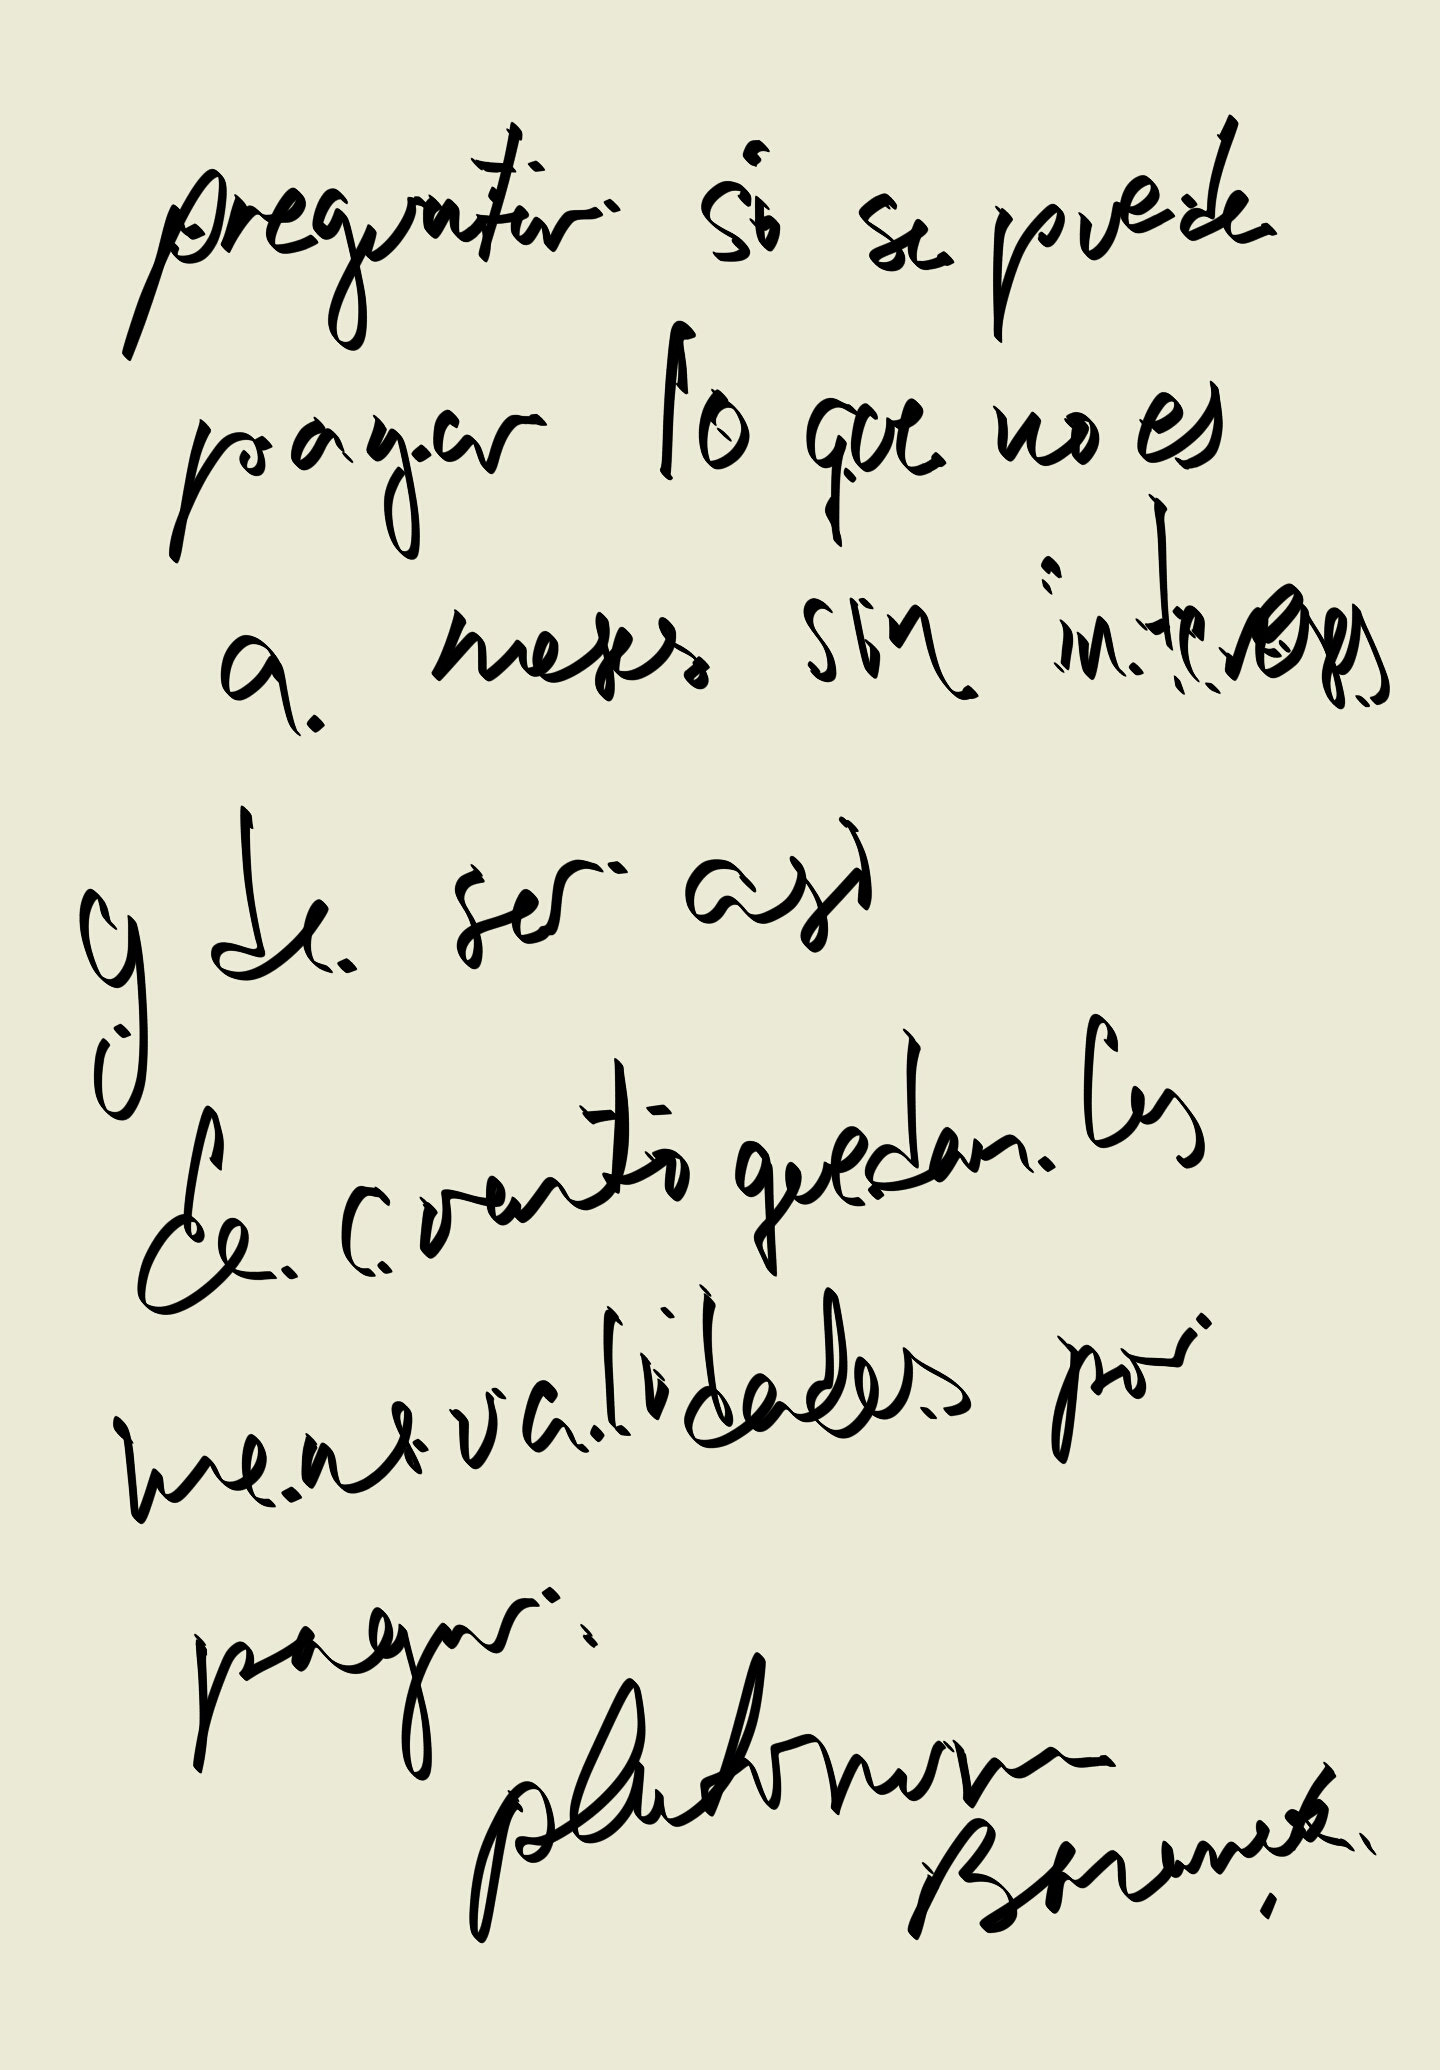 preguntar si se puede
pagar lo que no es
a meses sin intereses
y de ser así
de cuanto quedan las
mensualidades por
pagar.
platinum
Banamex.